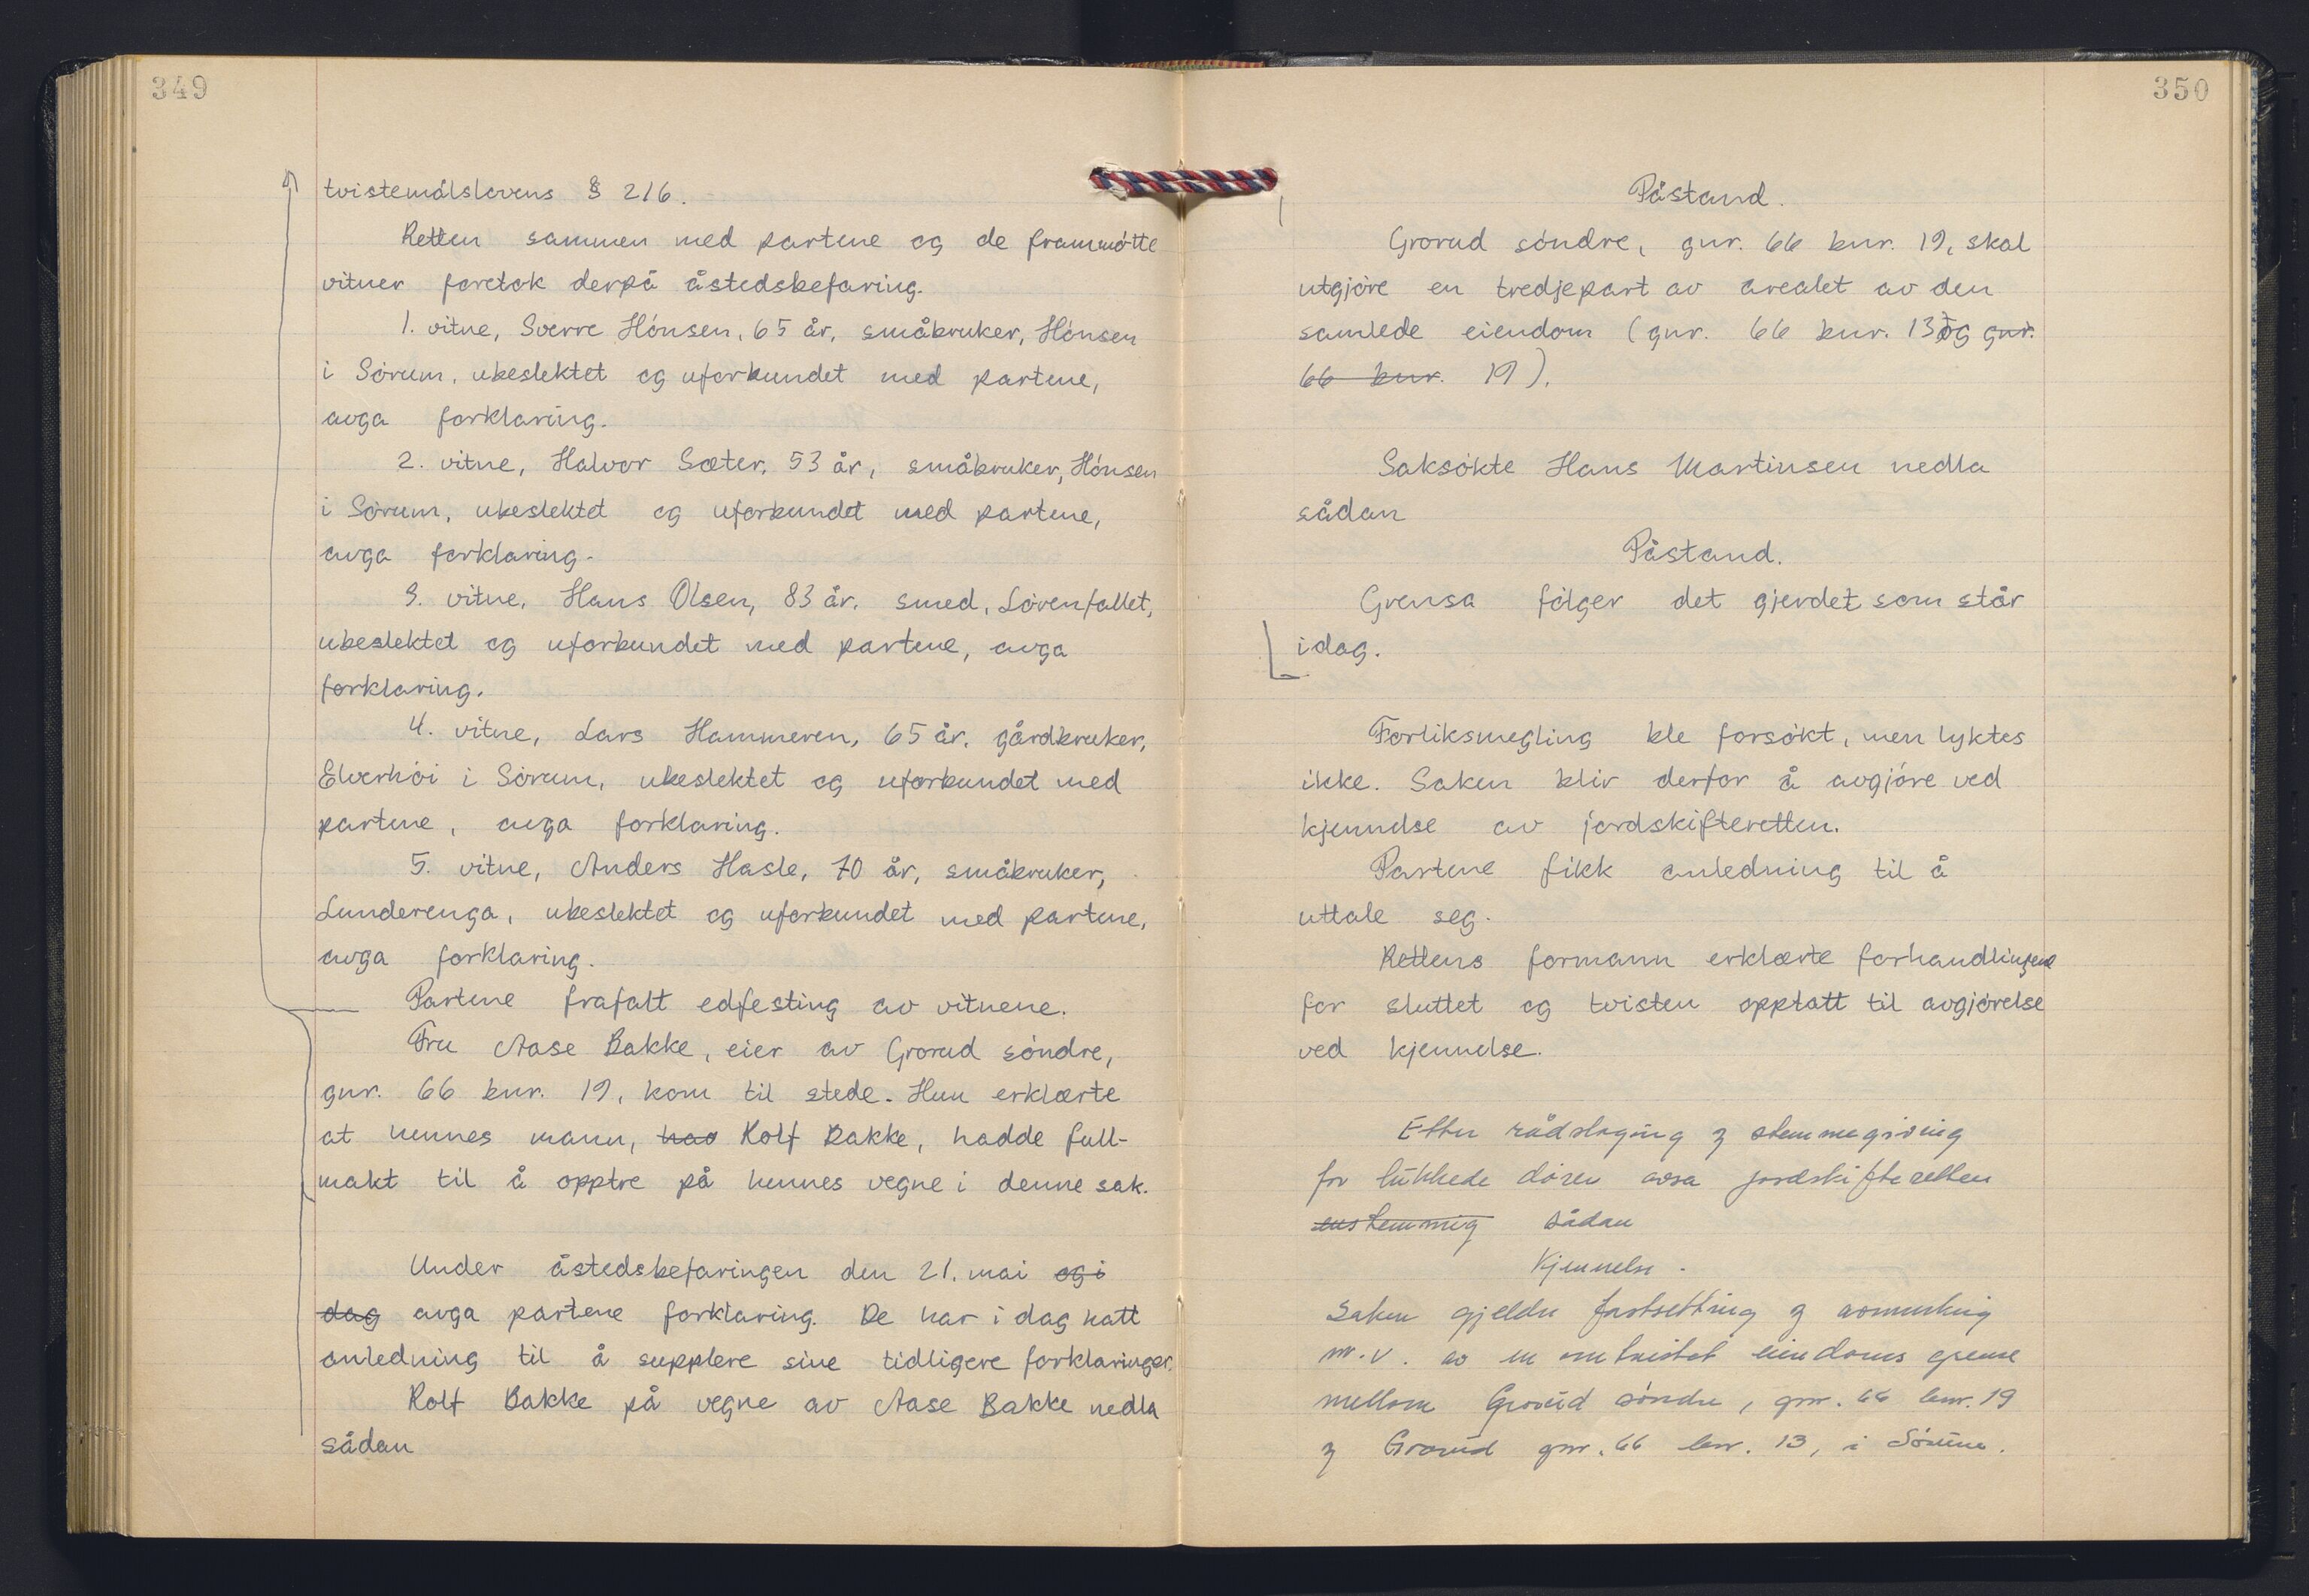 349
tvistemålslovens § 216.
Retten sammen med partene og de frammøtte
vitner foretok derpå åstedsbefaring.
1. vitne, Sverre Hónsen, 65 år, småbruker, Hónsen
i Sórum, ubeslektet og uforbundet med partene,
avga forklaring.
2. vitne, Halvor Sæter, 53 år, småbruker, Hónsen
i Sórum, ubeslektet og uforbundet med partene,
avga forklaring.
3. vitne, Hans Olsen, 83 år, smed, Lórenfallet,
ubeslektet og uforbundet med partene, avga
forklaring.
4. vitne, Lars Hammeren, 65 år, gårdbruker,
Elverhói i Sórum, ubeslektet og uforbundet med
partene, avga forklaring.
5. vitne, Anders Hasle, 70 år, småbruker,
Lunderenga, ubeslektet og uforbundet med partene,
avga forklaring.
Partene frafalt edfesting av vitnene.
Fru Aase Bakke, eier av Grorud sóndre,
gnr. 66 bnr. 19, kom til stede. Hun erklærte
at hennes mann, hav Rolf Bakke, hadde full-
makt til å opptre på hennes vegne i denne sak.
Under åstedsbefaringen den 21. mai og i
dag avga partene forklaring. De har i dag hatt
anledning til å supplere sine tidligere forklaringer.
Rolf Bakke på vegne av Aase Bakke nedla
sådan
350
Påstand.
Grorud sóndre, gnr. 66 bnr. 19, skal
utgjóre en tredjepart av arealet av den
samlede eiendom (gnr. 66 bnr. 13 og gnr.
66 bnr. 19).
Saksókte Hans Martinsen nedla
sådan
Påstand.
Grensa fólger det gjerdet som står
idag.
Forliksmegling ble forsókt, men lyktes
ikke. Saken blir derfor å avgjóre ved
kjennelse av jordskifteretten.
Partene fikk anledning til å
uttale seg.
Rettens formann erklærte forhandlingene
for sluttet og tvisten opptatt til avgjórelse
ved kjennelse.
Etter rådslaging og stemmegiving
for lukkede dórer avsa jordskifteretten
enstemmig sådan
Kjennelse.
Saken gjelder fastsetting og avmerking
m.v. av en omtvistet eiendoms grense
mellom Grorud sóndre, gnr. 66 bnr. 19
og Grorud gnr. 66 bnr. 13, i Sórum.